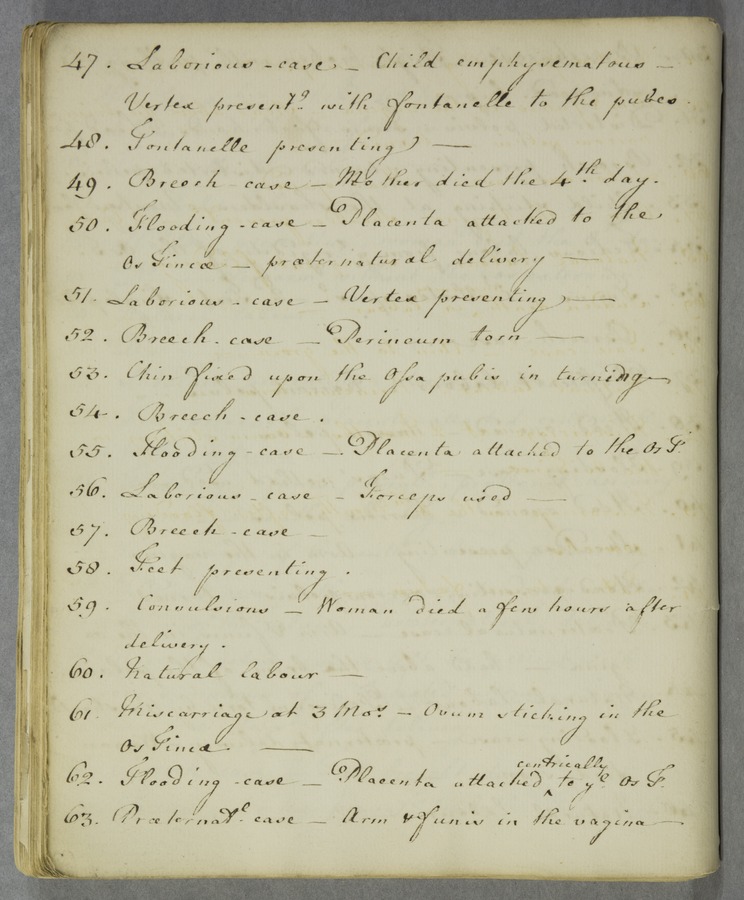 47. Laborious-case – Child emphysematous –
Vertex present.g with fontanelle to the pubes.
48. Fontanelle presenting –
49. Breech case – Mother died the 4th day.
50. Flooding-case – Placenta attached to the
Os Tincæ – præternatural delivery –
51. Laborious-case – Vertex presenting –
52. Breech-case – Perineum torn –
53. Chin fixed upon the Ossa pubis in turning –
54. Breech-case.
55. Flooding-case – Placenta attached to the Os T.
56. Laborious-case – Forceps used –
57. Breech-case –
58. Feet presenting.
59. Convulsions – Woman died a few hours after
delivery.
60. Natural labour –
61. Miscarriage at 3 Mos. – Ovum sticking in the
Os Tincæ –
62. Flooding-case – Placenta attached ‸centrically to ye Os T.
63. Præternatl. case – Arm & funis in the vagina –